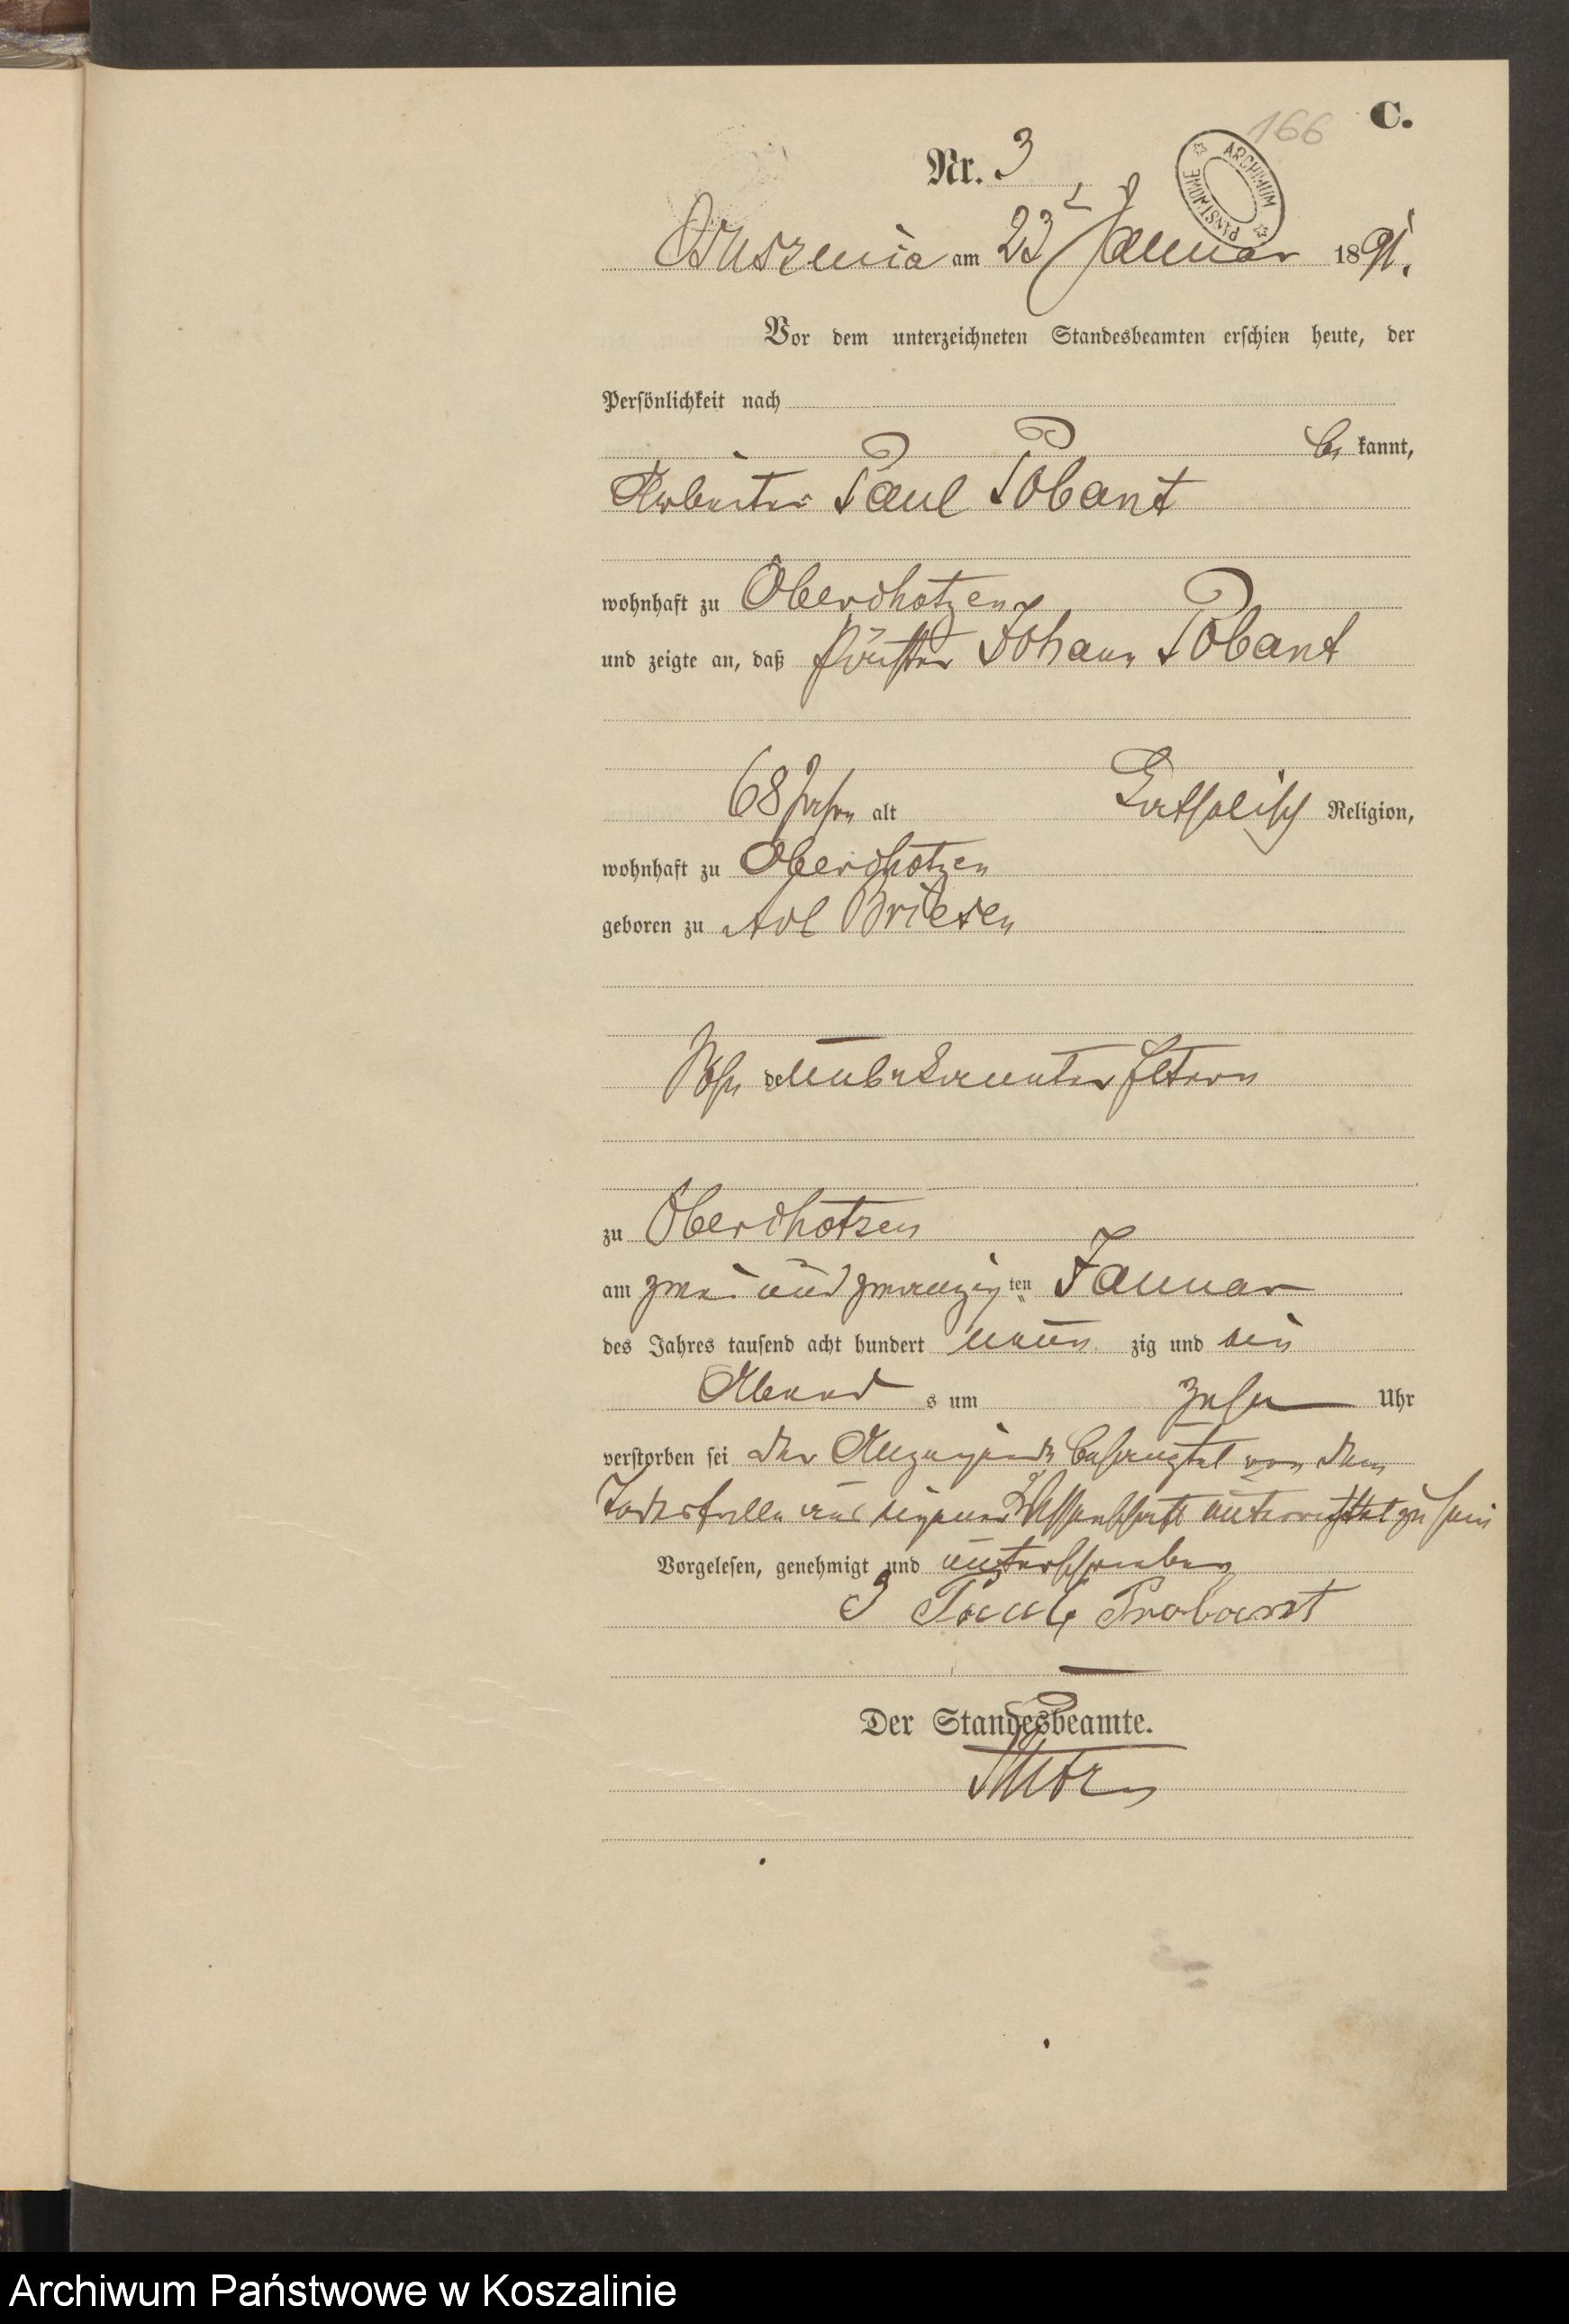 C.
166
Nr. 3
ARCHIWUM PAŃSTWOWE
am 23 t Januar 1891.
Vor dem unterzeichneten Standesbeamten erschien heute, der
Persönlichkeit nach
be kannt,
Arbeiter Paul Pobant
wohnhaft zu Oberchotzen
und zeigte an, daß Förster Johann Pobant
68 Jahre alt Katholisch Religion,
wohnhaft zu Oberchotzen
geboren zu Adl Briesen
Sohn de unbekannter Eltern
zu Oberchotzen
am zwei und zwanzig ten Januar
des Jahres tausend acht hundert neun zig und ein
Abend s um Zehn Uhr
verstorben sei der Anzeigende bezeugtet von dem
Todesfalle aus eigener Wissenschaft unterrichtet zu sein
Vorgelesen, genehmigt und unterschrieben
Paul Probant
Der Standesbeamte.
Archiwum Państwowe w Koszalinie